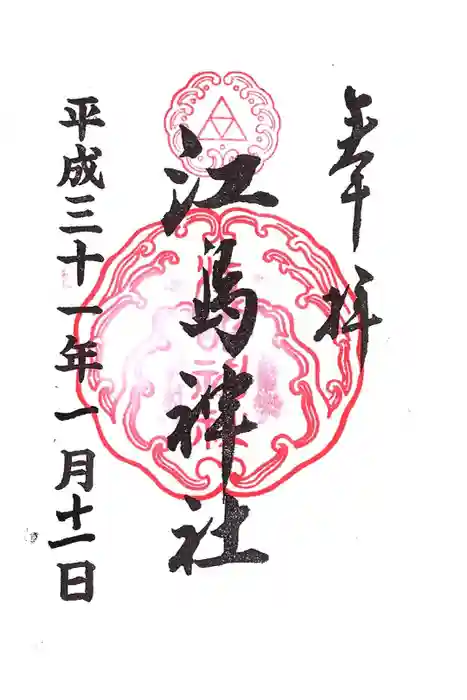 奉拝
江島神社
平成三十一年一月十一日